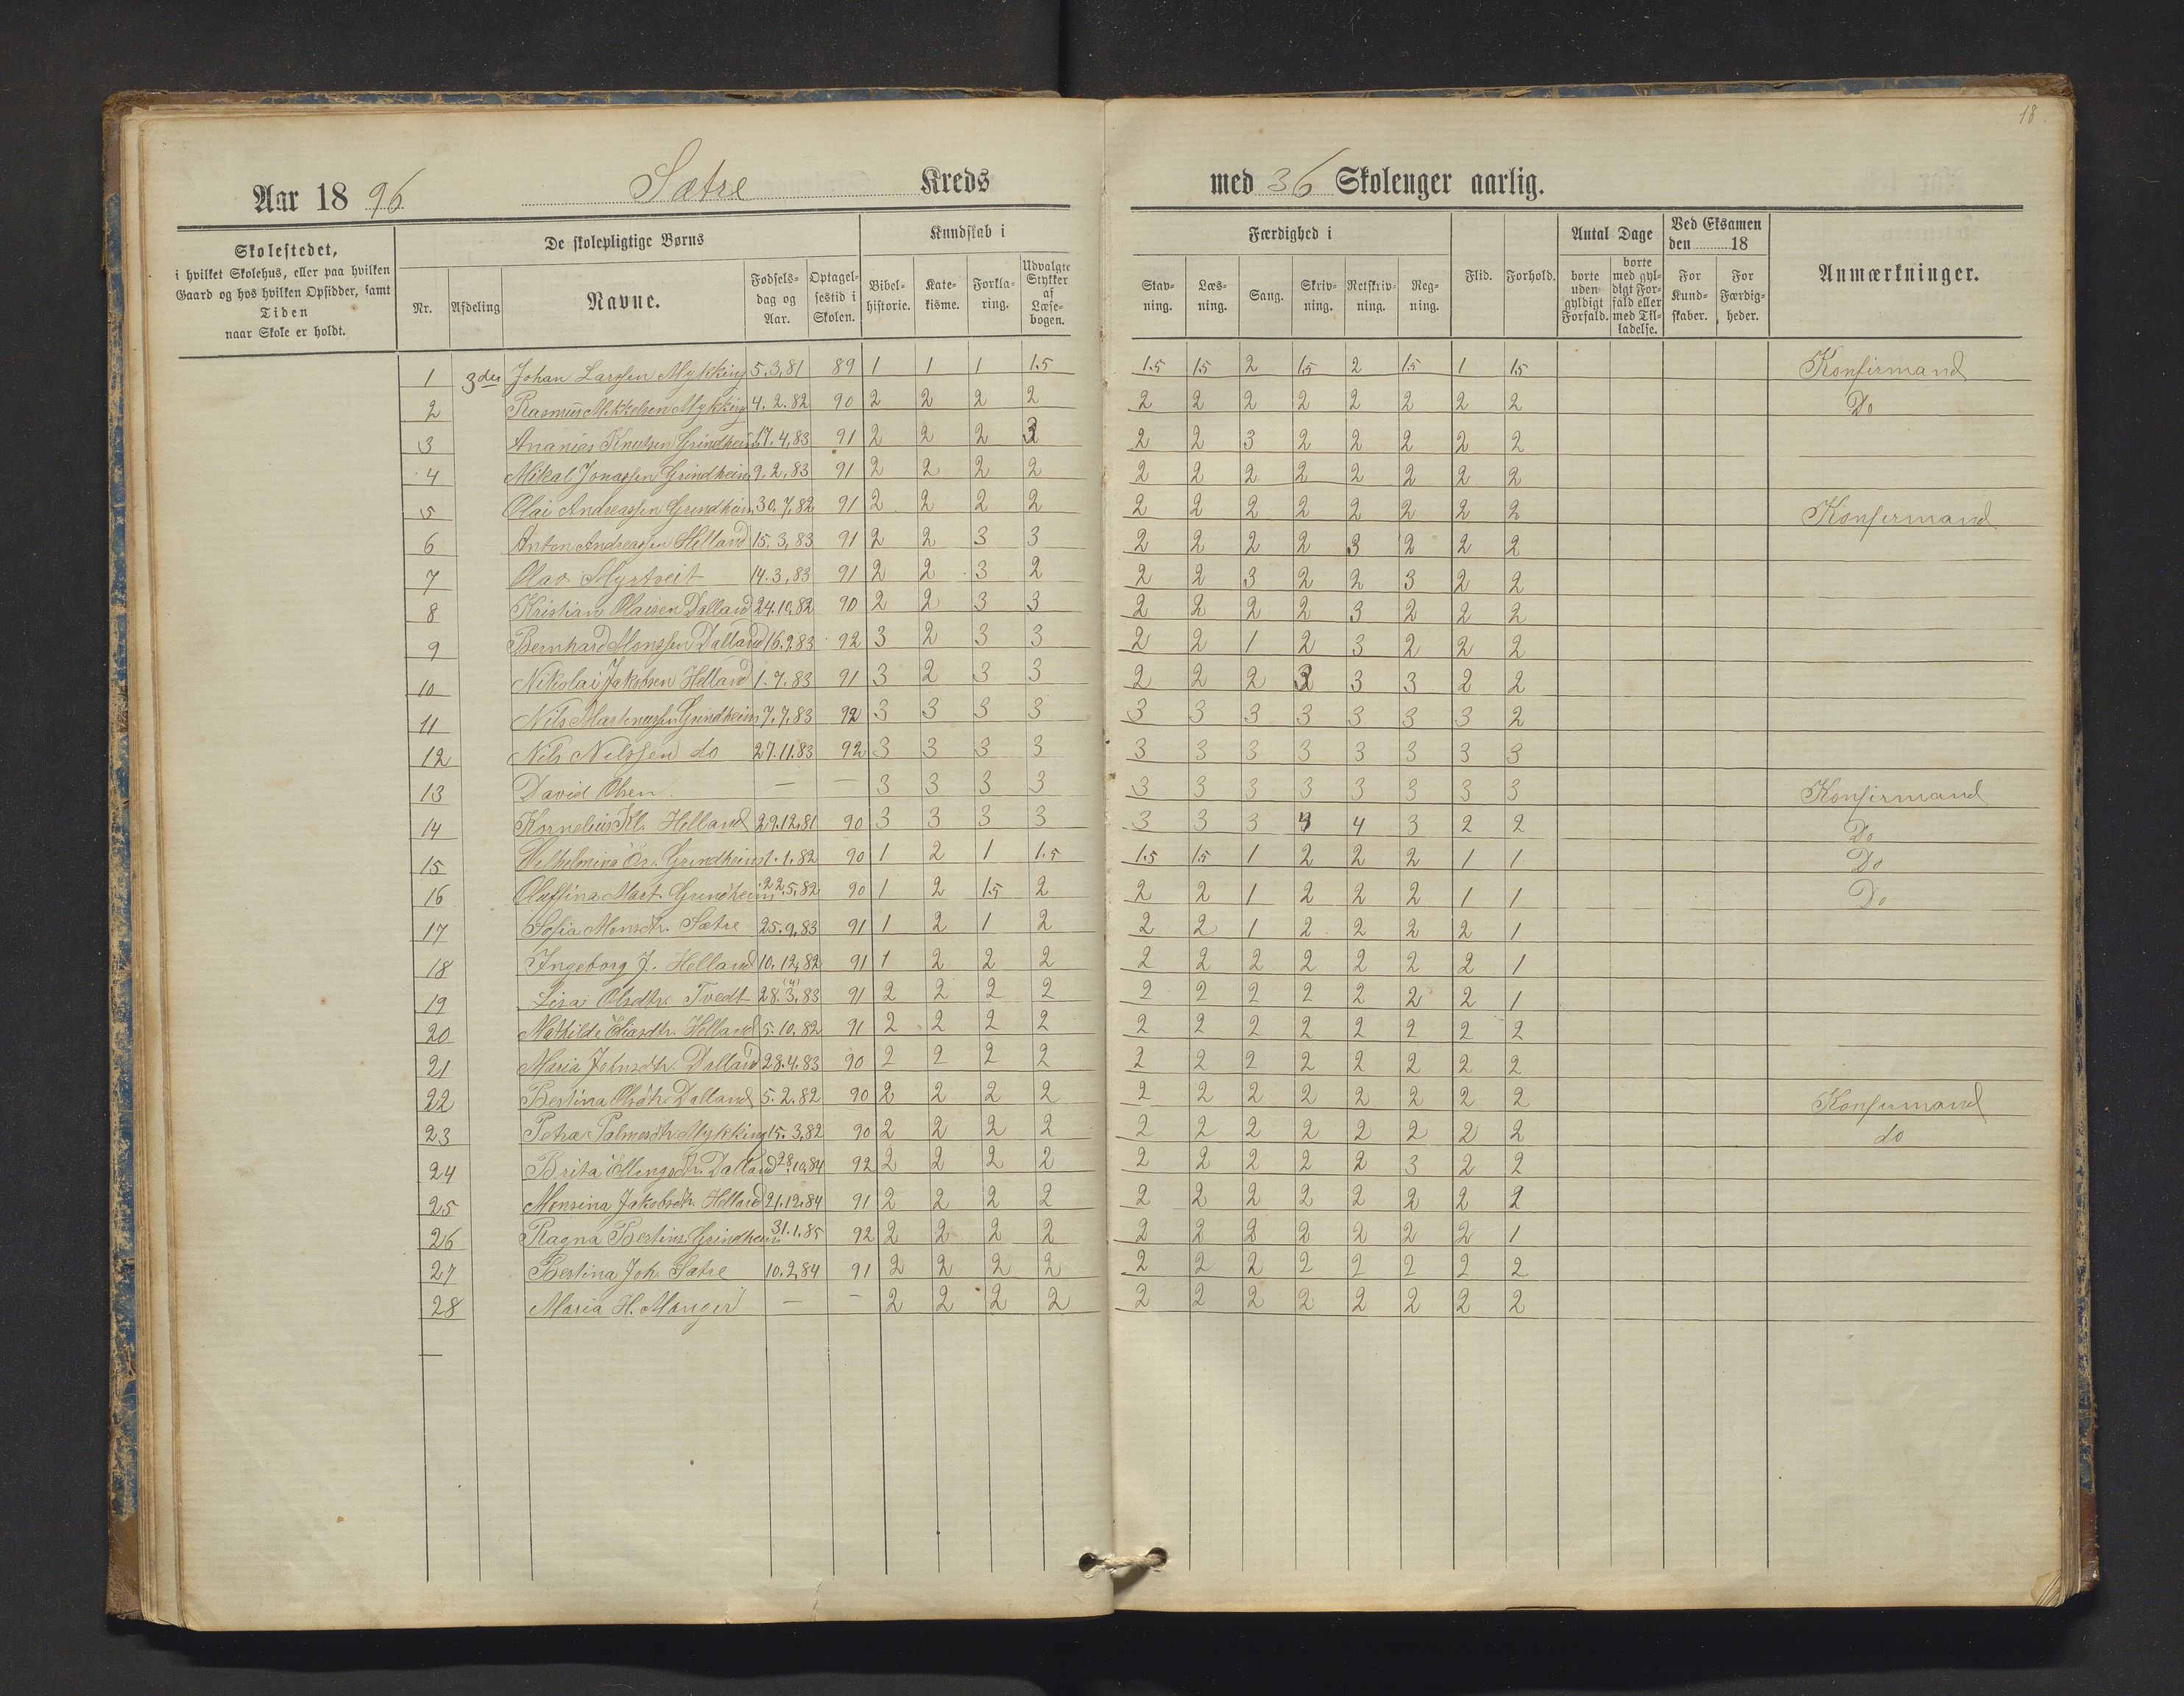 18
Aar 1896 Sætre Kreds med 36 Skoleuger aarlig.
Skolestedet, i hvilket Skolehus, eller paa hvilken Gaard og hos hvilken Opsidder, samt Tiden naar Skole er holdt.
De skolepligtige Børns
Kundskab i
Færdighed i
Antal Dage
Ved Eksamen den 18
Nr. Afdeling Navne. Fødselsdag og Aar. Optagelsestid i Skolen. Bibelhistorie. Katekisme. Forklaring. Udvalgte Stykker af Læsebogen. Stavning. Læsning. Sang. Skrivning. Retskrivning. Regning. Flid. Forhold. borte uden gyldigt Forfald. borte med gyldigt Forfald eller med Tilladelse. For Kundskaber. For Færdigheder. Anmærkninger.
1 3die Johan Larssen Mykking 5.3.81 89 1 1 1 1.5 1.5 1.5 2 1.5 2 1.5 1 1.5 Konfirmand
2 Rasmus Mikkelsen Mykking 4.2.82 90 2 2 2 2 2 2 2 2 2 2 2 2 Do
3 Ananias Knutsen Grindheim 17.4.83 91 2 2 2 3 2 2 3 2 2 2 2 2
4 Mikal Jonassen Grindheim 9.2.83 91 2 2 2 2 2 2 2 2 2 2 2 2
5 Olai Andreassen Grindheim 30.7.82 91 2 2 2 2 2 2 2 2 2 2 2 2 Konfirmand
6 Anton Andreassen Helland 15.3.83 91 2 2 3 3 2 2 2 2 3 2 2 2
7 Olav Myrtveit 14.3.83 91 2 2 3 2 2 2 3 2 2 3 2 2
8 Kristian Olaisen Dalland 24.10.82 90 2 2 3 3 2 2 2 2 3 2 2 2
9 Bernhard Monssen Dalland 16.9.83 92 3 2 3 3 2 2 1 2 3 2 2 2
10 Nikolai Jakobsen Helland 1.7.83 91 3 2 3 3 2 2 2 3 3 3 2 2
11 Nils Martinussen Grindheim 7.7.83 92 3 3 3 3 3 3 3 3 3 3 3 2
12 Nils Nilssen do 27.11.83 92 3 3 3 3 3 3 3 3 3 3 3 3
13 David Olsen — — 3 3 3 3 3 3 3 3 3 3 3 3 Konfirmand
14 Kornelius Kl. Helland 29.12.81 90 3 3 3 3 3 3 3 4 4 3 2 2 Do
15 Wilhelmina Grindheim 1.1.82 90 1 2 1 1.5 1.5 1.5 1 2 2 2 1 1 Do
16 Oluffina Mart. Grindheim 22.5.82 90 1 2 1.5 2 2 2 1 2 2 2 1 1 Do
17 Sofia Monsdtr. Sætre 25.9.83 91 1 2 1 2 2 2 1 2 2 2 2 1
18 Ingeborg J. Helland 10.12.82 91 1 2 2 2 2 2 2 2 2 2 2 1
19 Lisa Olsdtr. Tvedt 28.3.83 91 2 2 2 2 2 2 2 2 2 2 2 1
20 Mathilde Eliasdtr. Helland 5.10.82 91 2 2 2 2 2 2 2 2 2 2 2 2
21 Maria Johnsdtr. Dalland 28.4.83 90 2 2 2 2 2 2 2 2 2 2 2 2
22 Bertina Olsdtr. Dalland 5.2.82 90 2 2 2 2 2 2 2 2 2 2 2 2 Konfirmand
23 Petra Palmesdtr. Mykking 15.3.82 90 2 2 2 2 2 2 2 2 2 2 2 2 do
24 Brita Ellingsdtr. Dalland 28.10.84 92 2 2 2 2 2 2 2 2 2 3 2 2
25 Monsina Jakobsdtr. Helland 21.12.84 91 2 2 2 2 2 2 2 2 2 2 2 2
26 Ragna Bertins. Grindheim 31.1.85 92 2 2 2 2 2 2 2 2 2 2 2 1
27 Bertina Joh. Sætre 10.2.84 91 2 2 2 2 2 2 2 2 2 2 2 2
28 Maria H. Manger — — 2 2 2 2 2 2 2 2 2 2 2 2